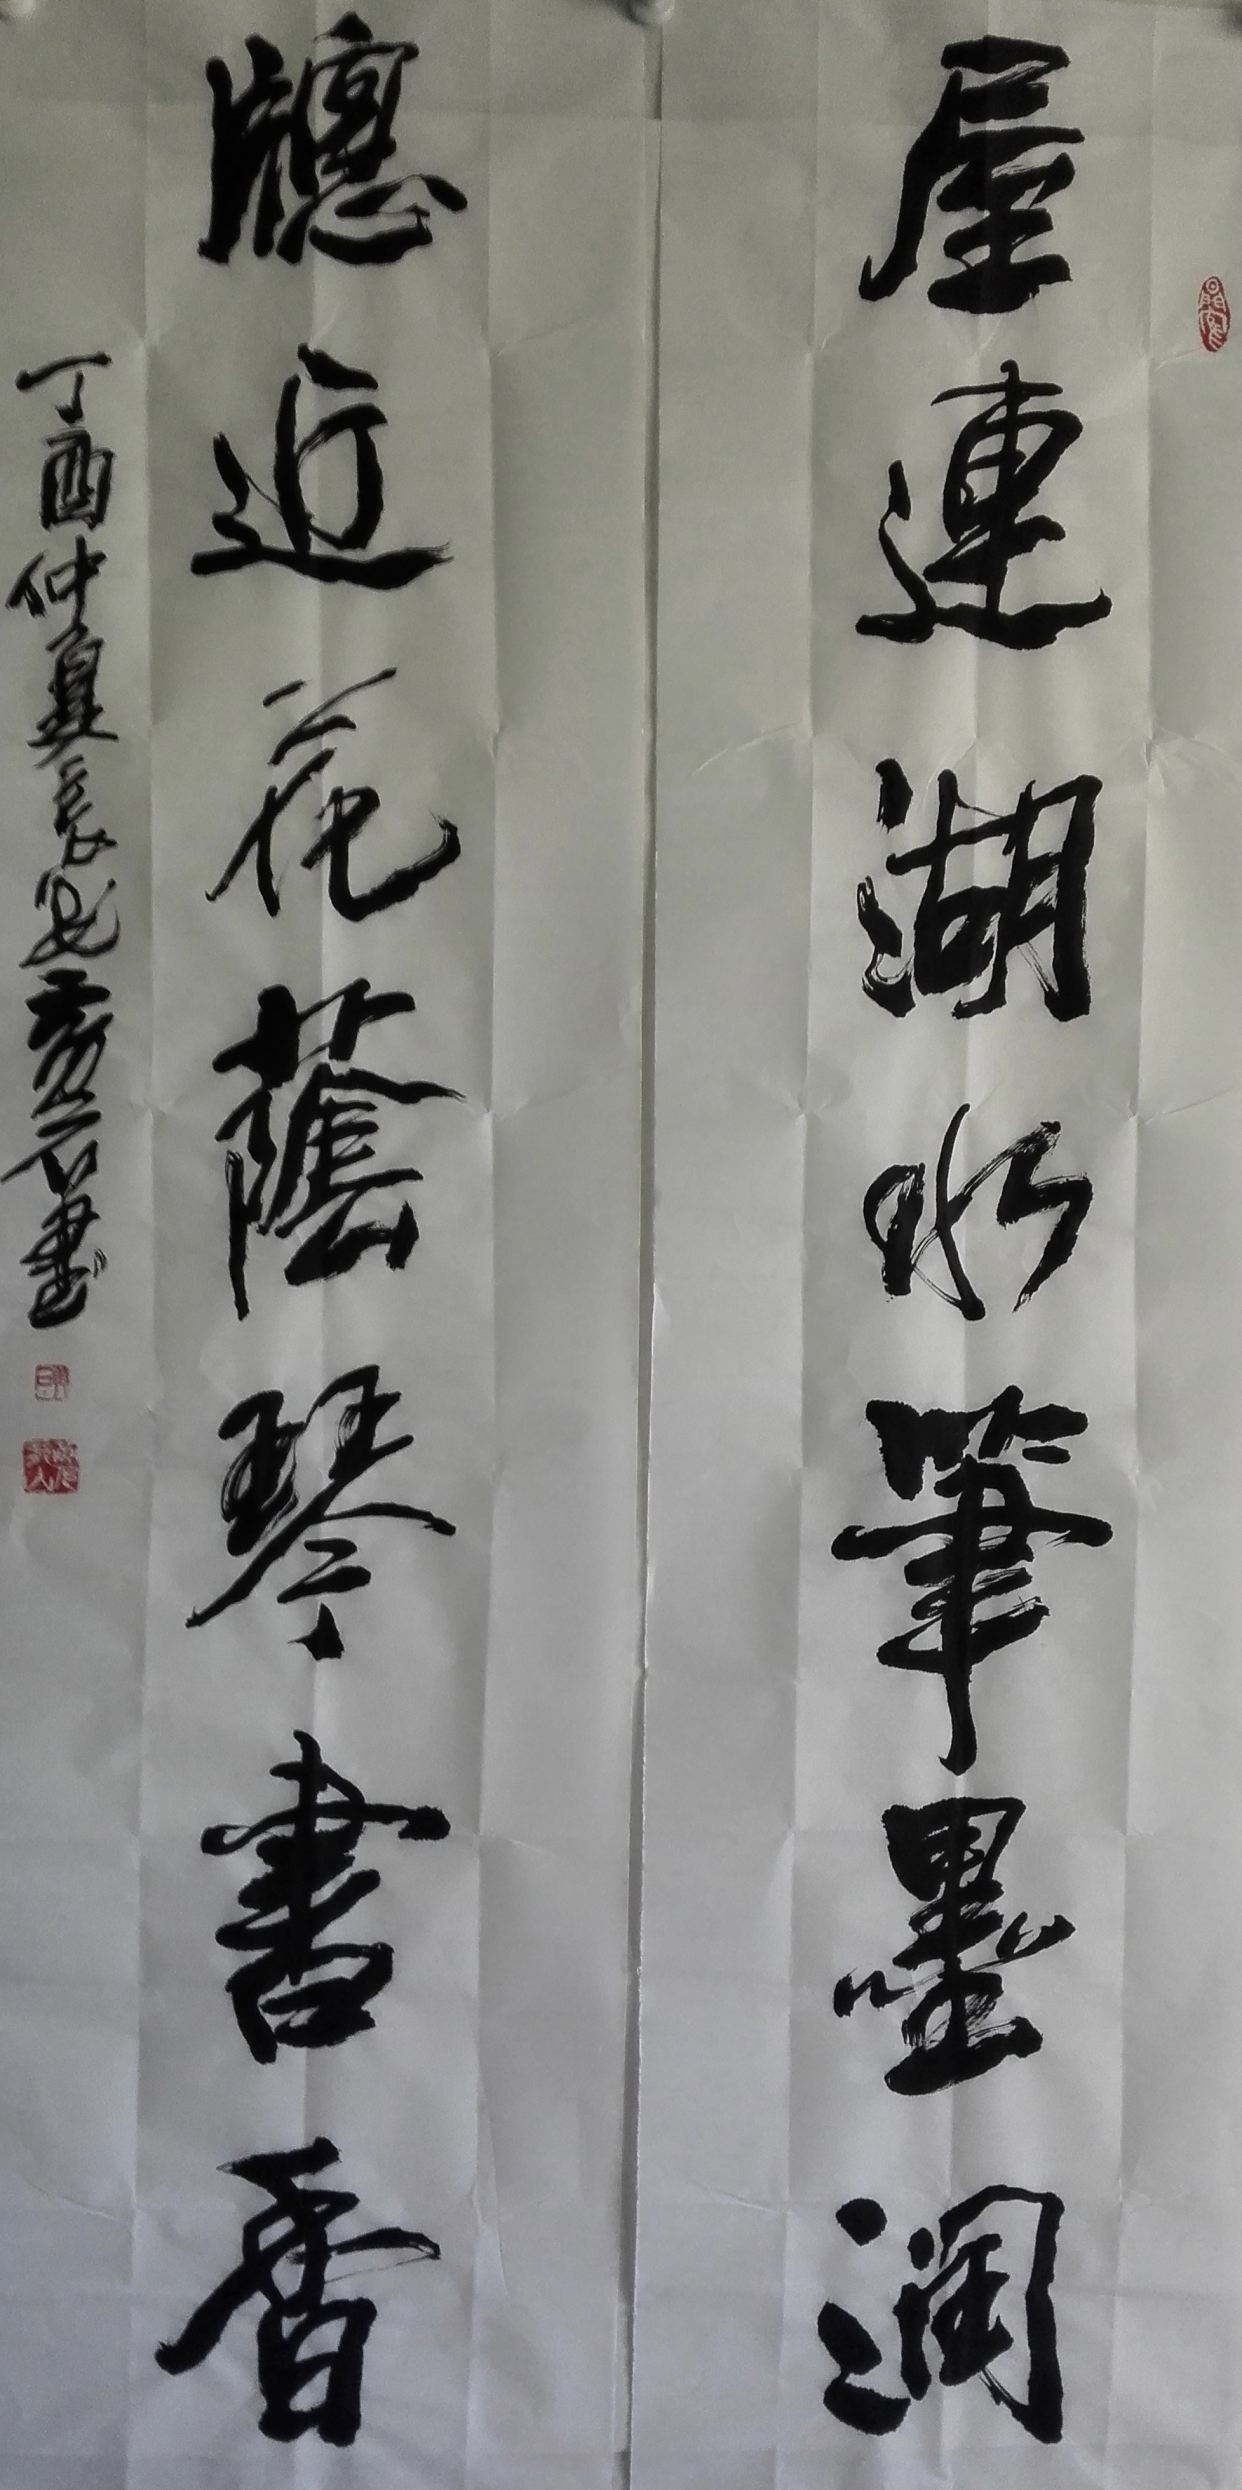 屋連湖水筆墨潤
牕近花蔭琴書香
丁酉仲夏長安雲石書